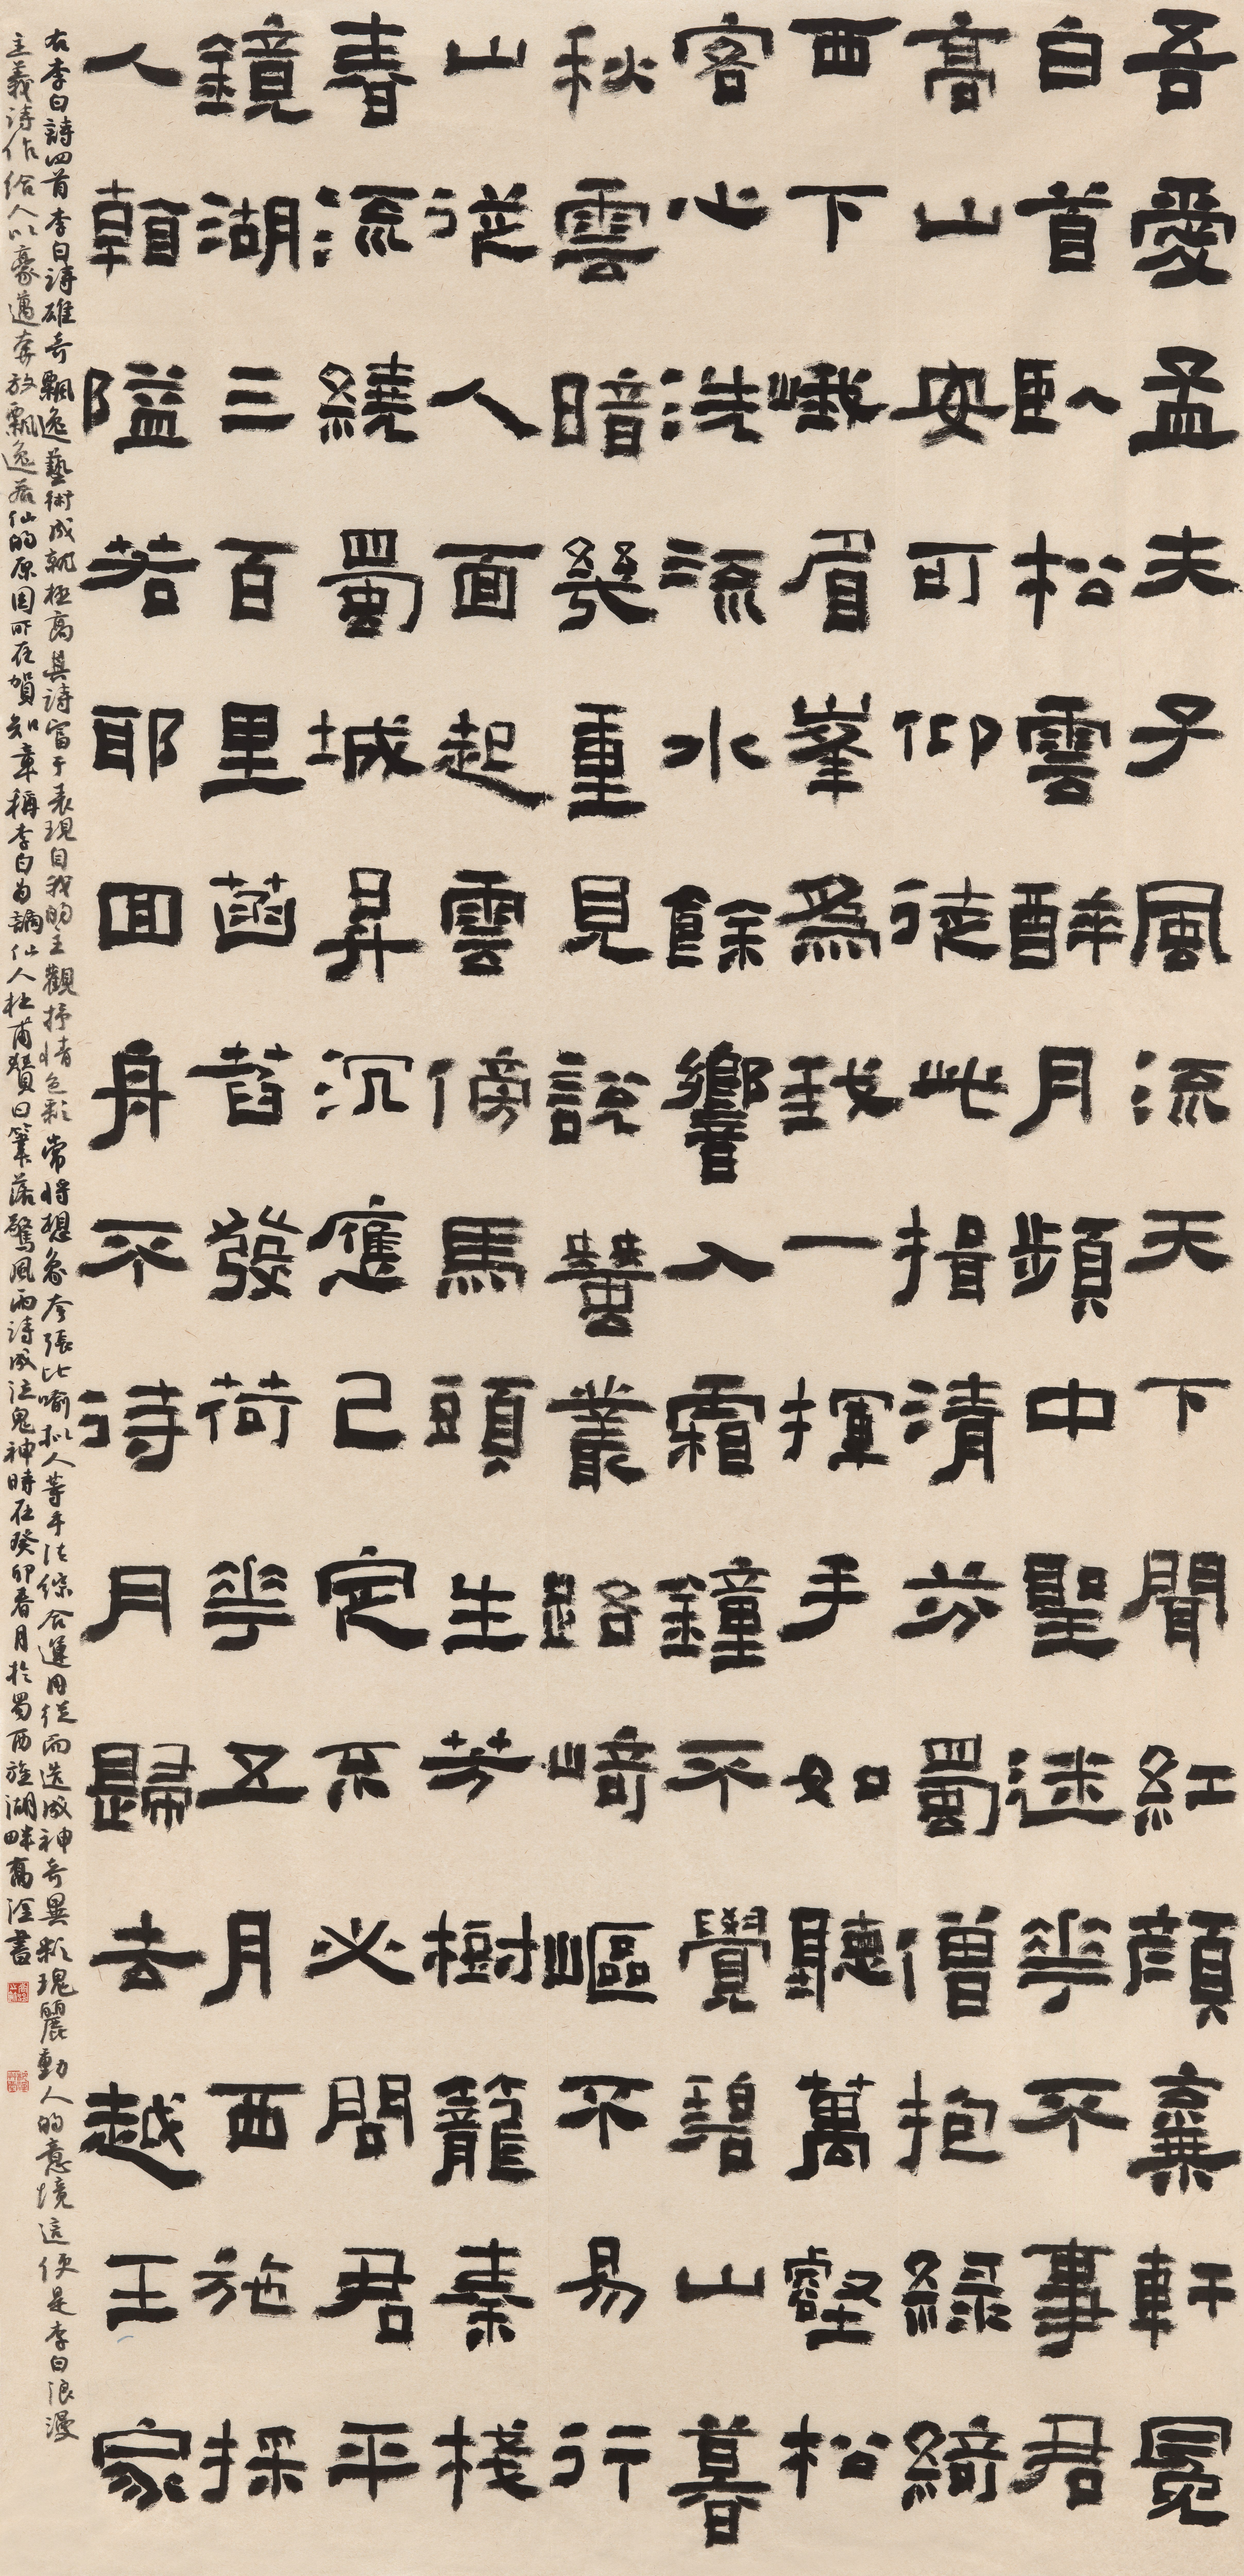 吾愛孟夫子風流天下聞紅顔棄軒冕
自首臥松雲醉月頻中聖迷花不事君
高山安可仰徒此揖清芬蜀僧抱綠綺
西下峨眉峯為我一揮手如聽萬壑松
客心洗流水餘響入霜鐘不覺碧山暮
秋雲暗幾重見說蠶叢路崎嶇不易行
山從人面起雲傍馬頭生芳樹籠秦棧
春流繞蜀城昇沉應已定不必問君平
鏡湖三百里菡萏發荷花五月西施採
人看隘若耶回舟不待月歸去越王家
右李白詩四首李白詩雄奇飄逸藝術成就極高其詩富于表現自我的主觀抒情色彩常將想象夸張比喻擬人等手法綜合運用從而造成神奇異彩瑰麗動人的意境這便是李白浪漫
主義詩作給人以豪邁奔放飄逸若仙的原因所在賀知章稱李白為謫仙人杜甫贊曰筆落驚風雨詩成泣鬼神時在癸卯春月於蜀西旌湖畔高淦書